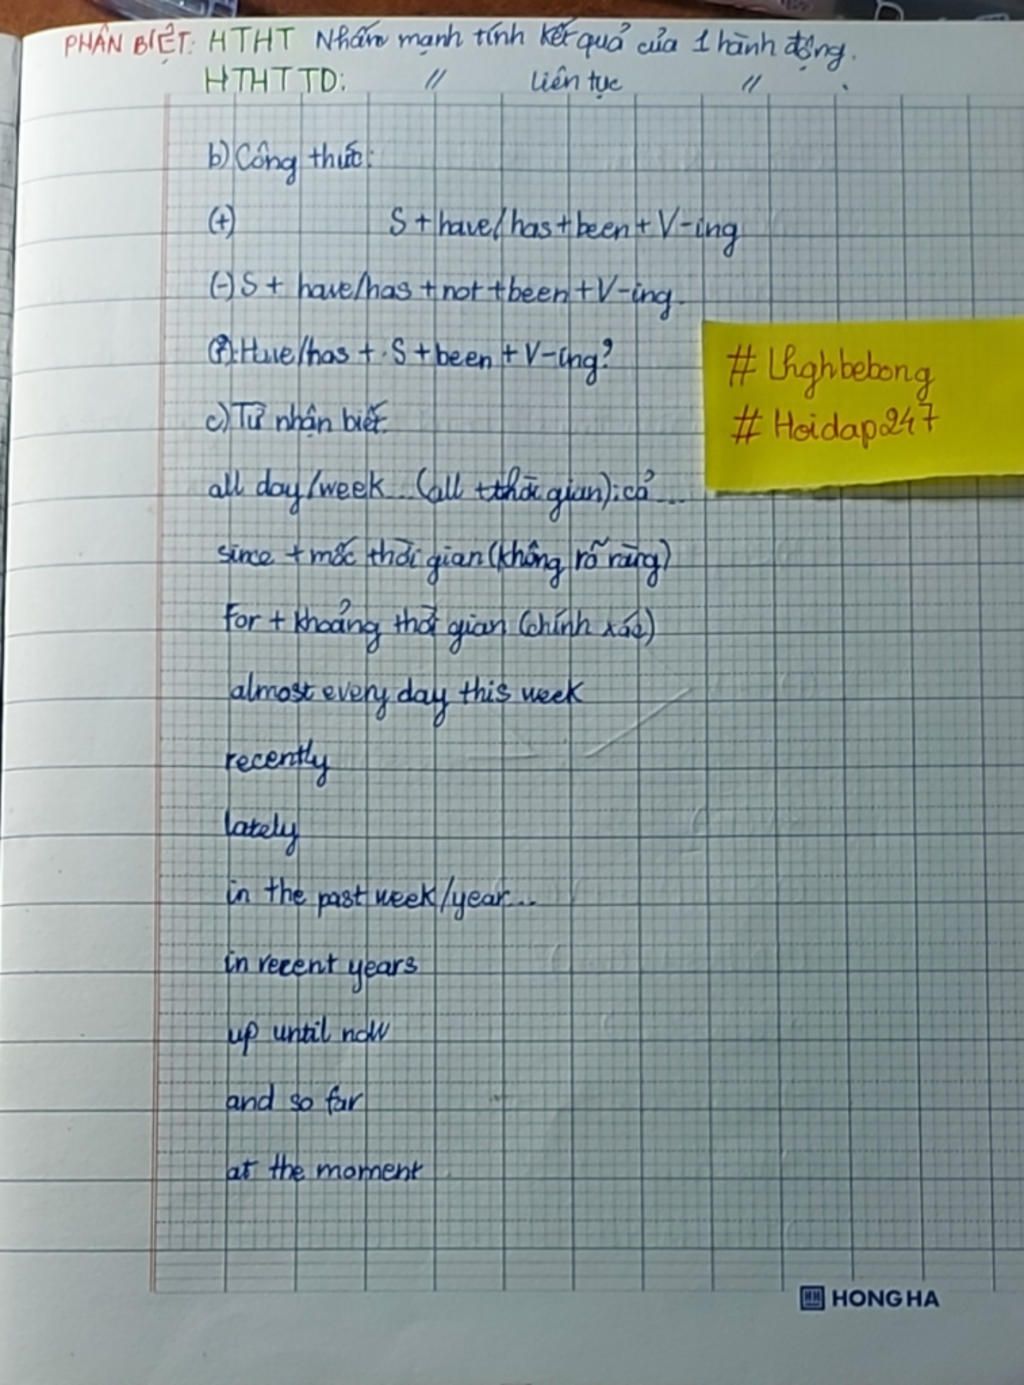 PHÂN BIỆT: HTHT Nhấn mạnh tính kết quả của 1 hành động.
HTHTTD: // liên tục // .
b) Công thức:
(+) S + have/has + been + V-ing
(-) S + have/has + not + been + V-ing.
(?): Have/has + S + been + V-ing?
# Lhghbebong
# Hoidap247
c) Từ nhận biết:
all day/week... (all + thời gian): cả ...
since + mốc thời gian (không rõ ràng)
For + khoảng thời gian (chính xác)
almost every day this week
recently
lately
in the past week/year...
in recent years
up until now
and so far
at the moment
HONG HA